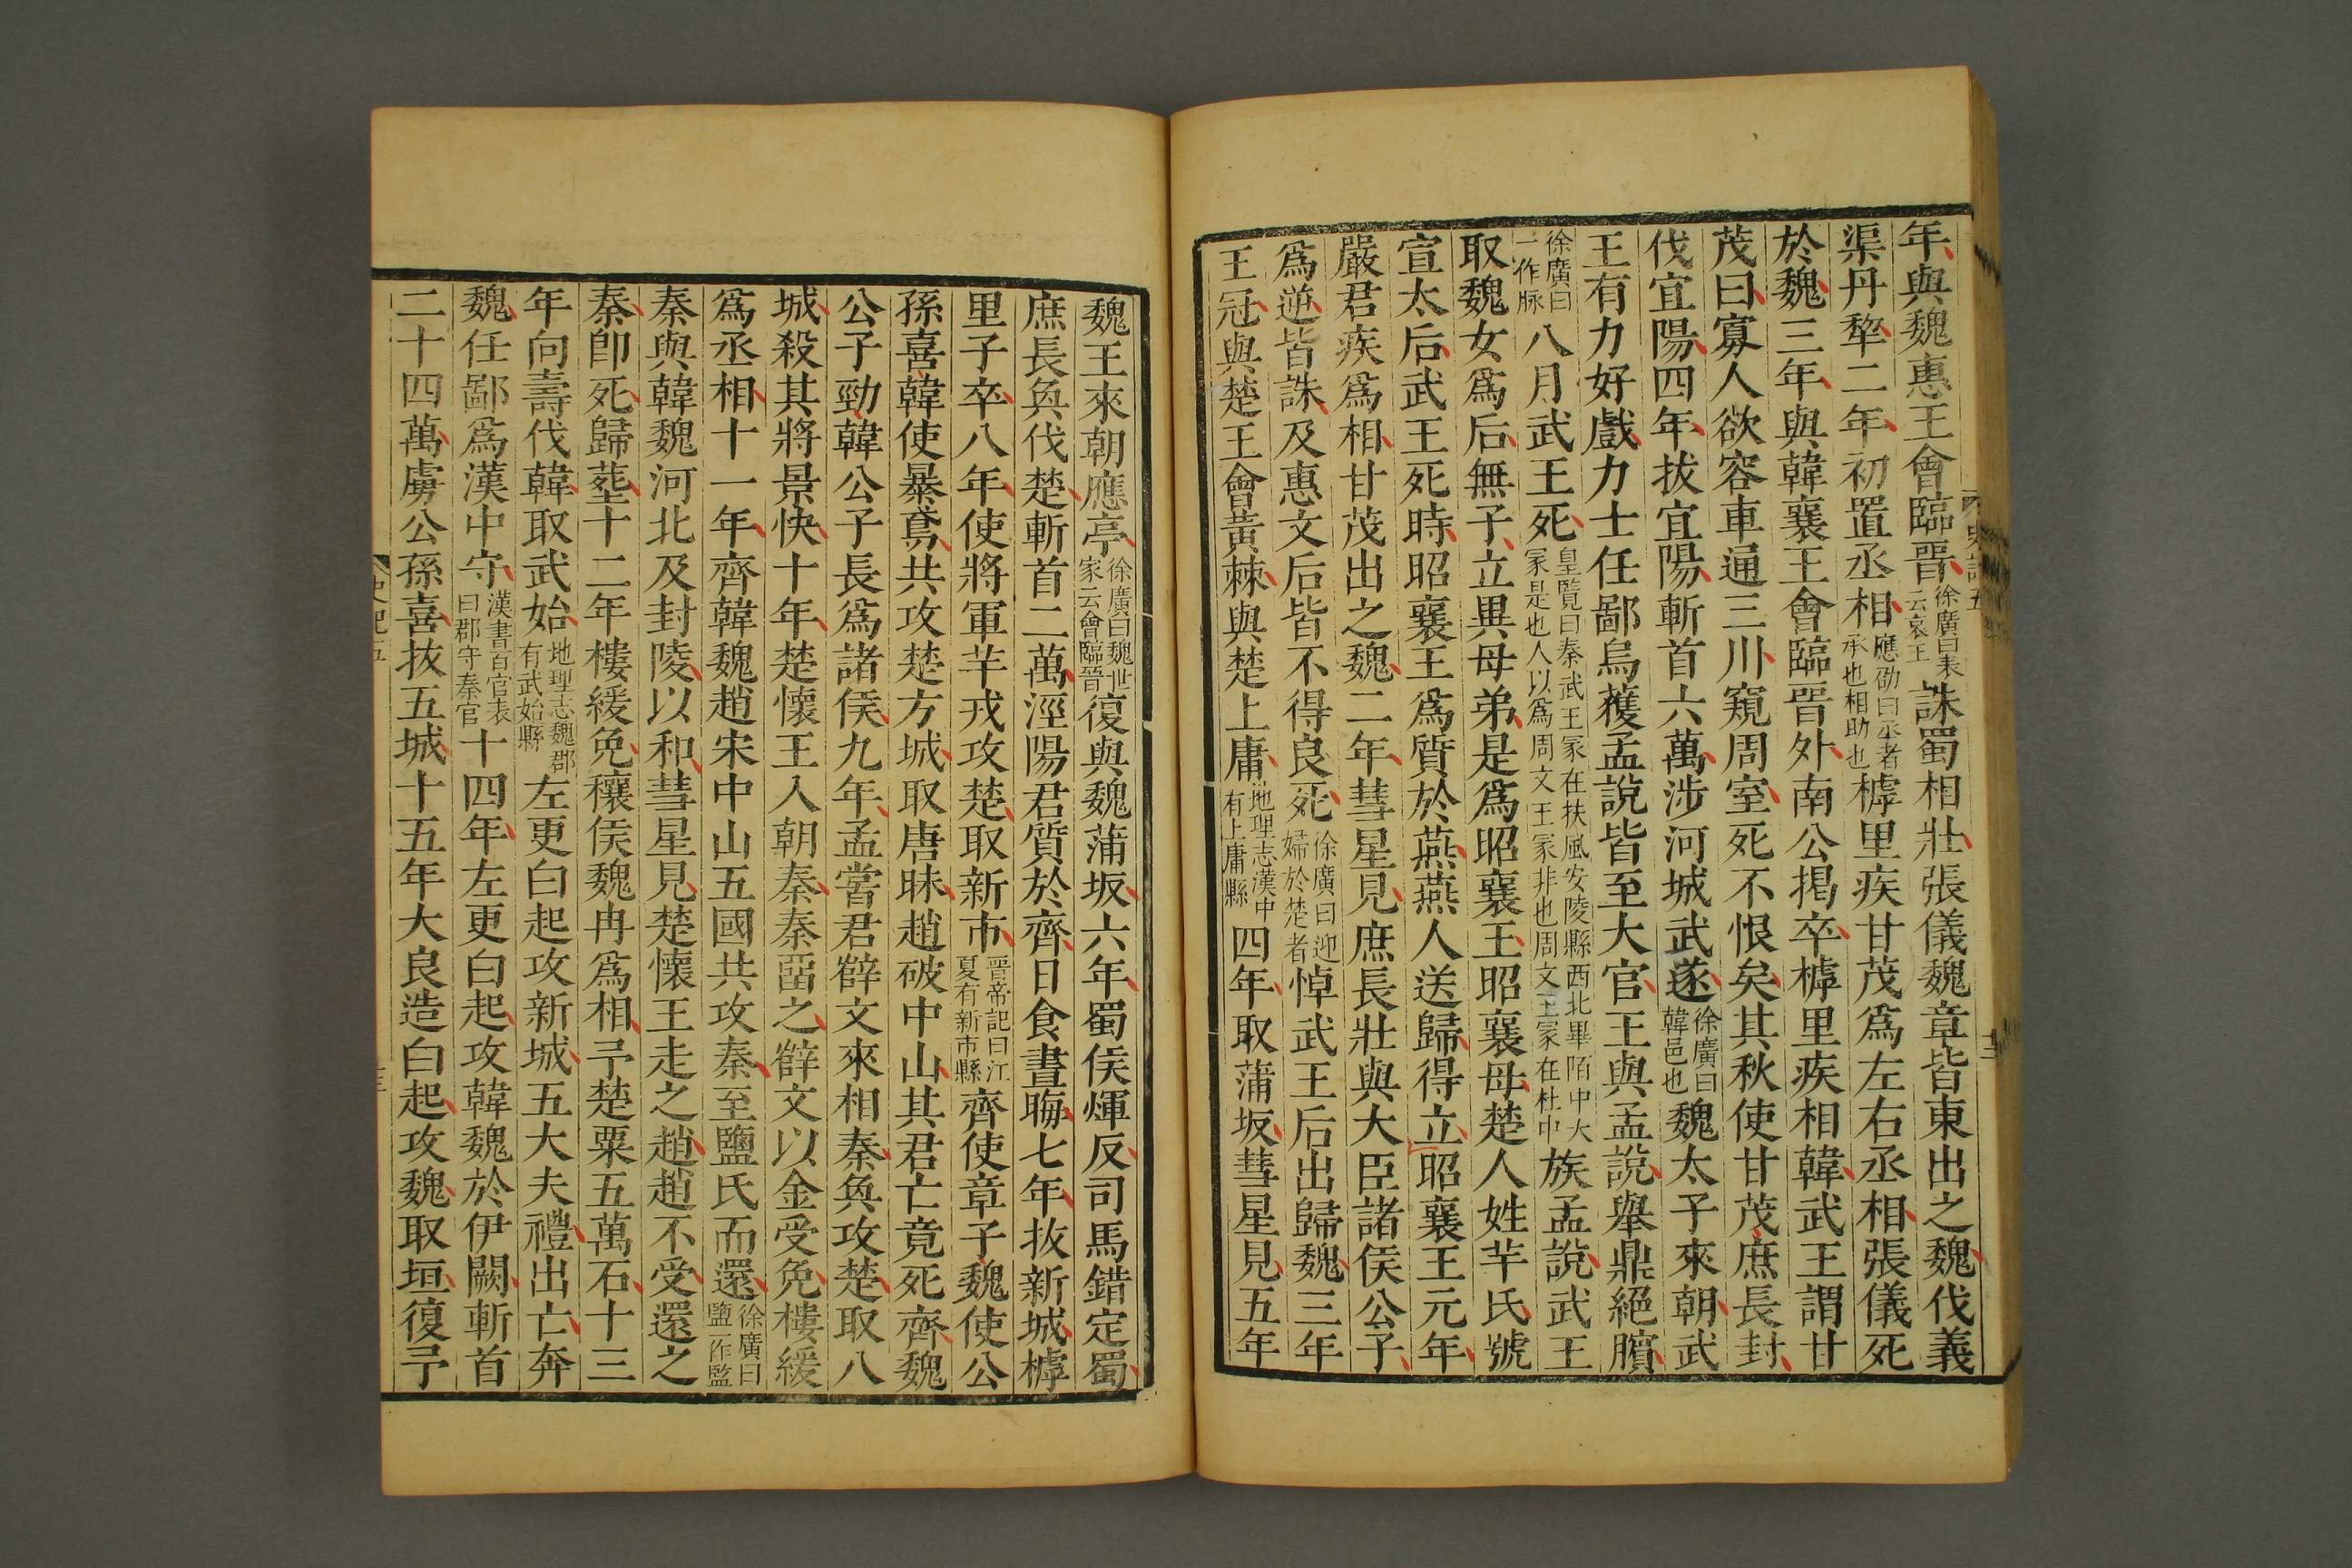 年與魏惠王會臨晉徐廣曰表云哀王誅蜀相壯張儀魏章皆東出之魏伐義
渠丹犂二年初置丞相應劭曰丞者承也相助也樗里疾甘茂爲左右丞相張儀死
於魏三年與韓襄王會臨晉外南公揭卒樗里疾相韓武王謂甘
茂曰寡人欲容車通三川窺周室死不恨矣其秋使甘茂庶長封
伐宜陽四年拔宜陽斬首六萬涉河城武遂徐廣曰韓邑也魏太子來朝武
王有力好戲力士任鄙烏獲孟說皆至大官王與孟說舉鼎絕臏
徐廣曰一作脉八月武王死皇覽曰秦武王冢在扶風安陵縣西北畢陌中大冢是也人以爲周文王冢非也周文王冢在杜中族孟說武王
取魏女爲后無子立異母弟是爲昭襄王昭襄母楚人姓羋氏號
宣太后武王死時昭襄王爲質於燕燕人送歸得立昭襄王元年
嚴君疾爲相甘茂出之魏二年彗星見庶長壯與大臣諸侯公子
爲逆皆誅及惠文后皆不得良死徐廣曰迎婦於楚者悼武王后出歸魏三年
王冠與楚王會黃棘與楚上庸地理志漢中有上庸縣四年取蒲坂彗星見五年
魏王來朝應亭徐廣曰魏世家云會臨晉復與魏蒲坂六年蜀侯煇反司馬錯定蜀
庶長奐伐楚斬首二萬涇陽君質於齊日食晝晦七年拔新城樗
里子卒八年使將軍羋戎攻楚取新市晉帝記曰江夏有新市縣齊使章子魏使公
孫喜韓使暴鳶共攻楚方城取唐眜趙破中山其君亡竟死齊魏
公子勁韓公子長爲諸侯九年孟嘗君辥文來相秦奐攻楚取八
城殺其將景快十年楚懷王入朝秦秦畱之辥文以金受免樓緩
爲丞相十一年齊韓魏趙宋中山五國共攻秦至鹽氏而還徐廣曰鹽一作監
秦與韓魏河北及封陵以和彗星見楚懷王走之趙趙不受還之
秦卽死歸塟十二年樓緩免穰侯魏冉爲相予楚粟五萬石十三
年向壽伐韓取武始地理志魏郡有武始縣左更白起攻新城五大夫禮出亡奔
魏任鄙爲漢中守漢書百官表曰郡守秦官十四年左更白起攻韓魏於伊闕斬首
二十四萬虜公孫喜拔五城十五年大良造白起攻魏取垣復予
史記五